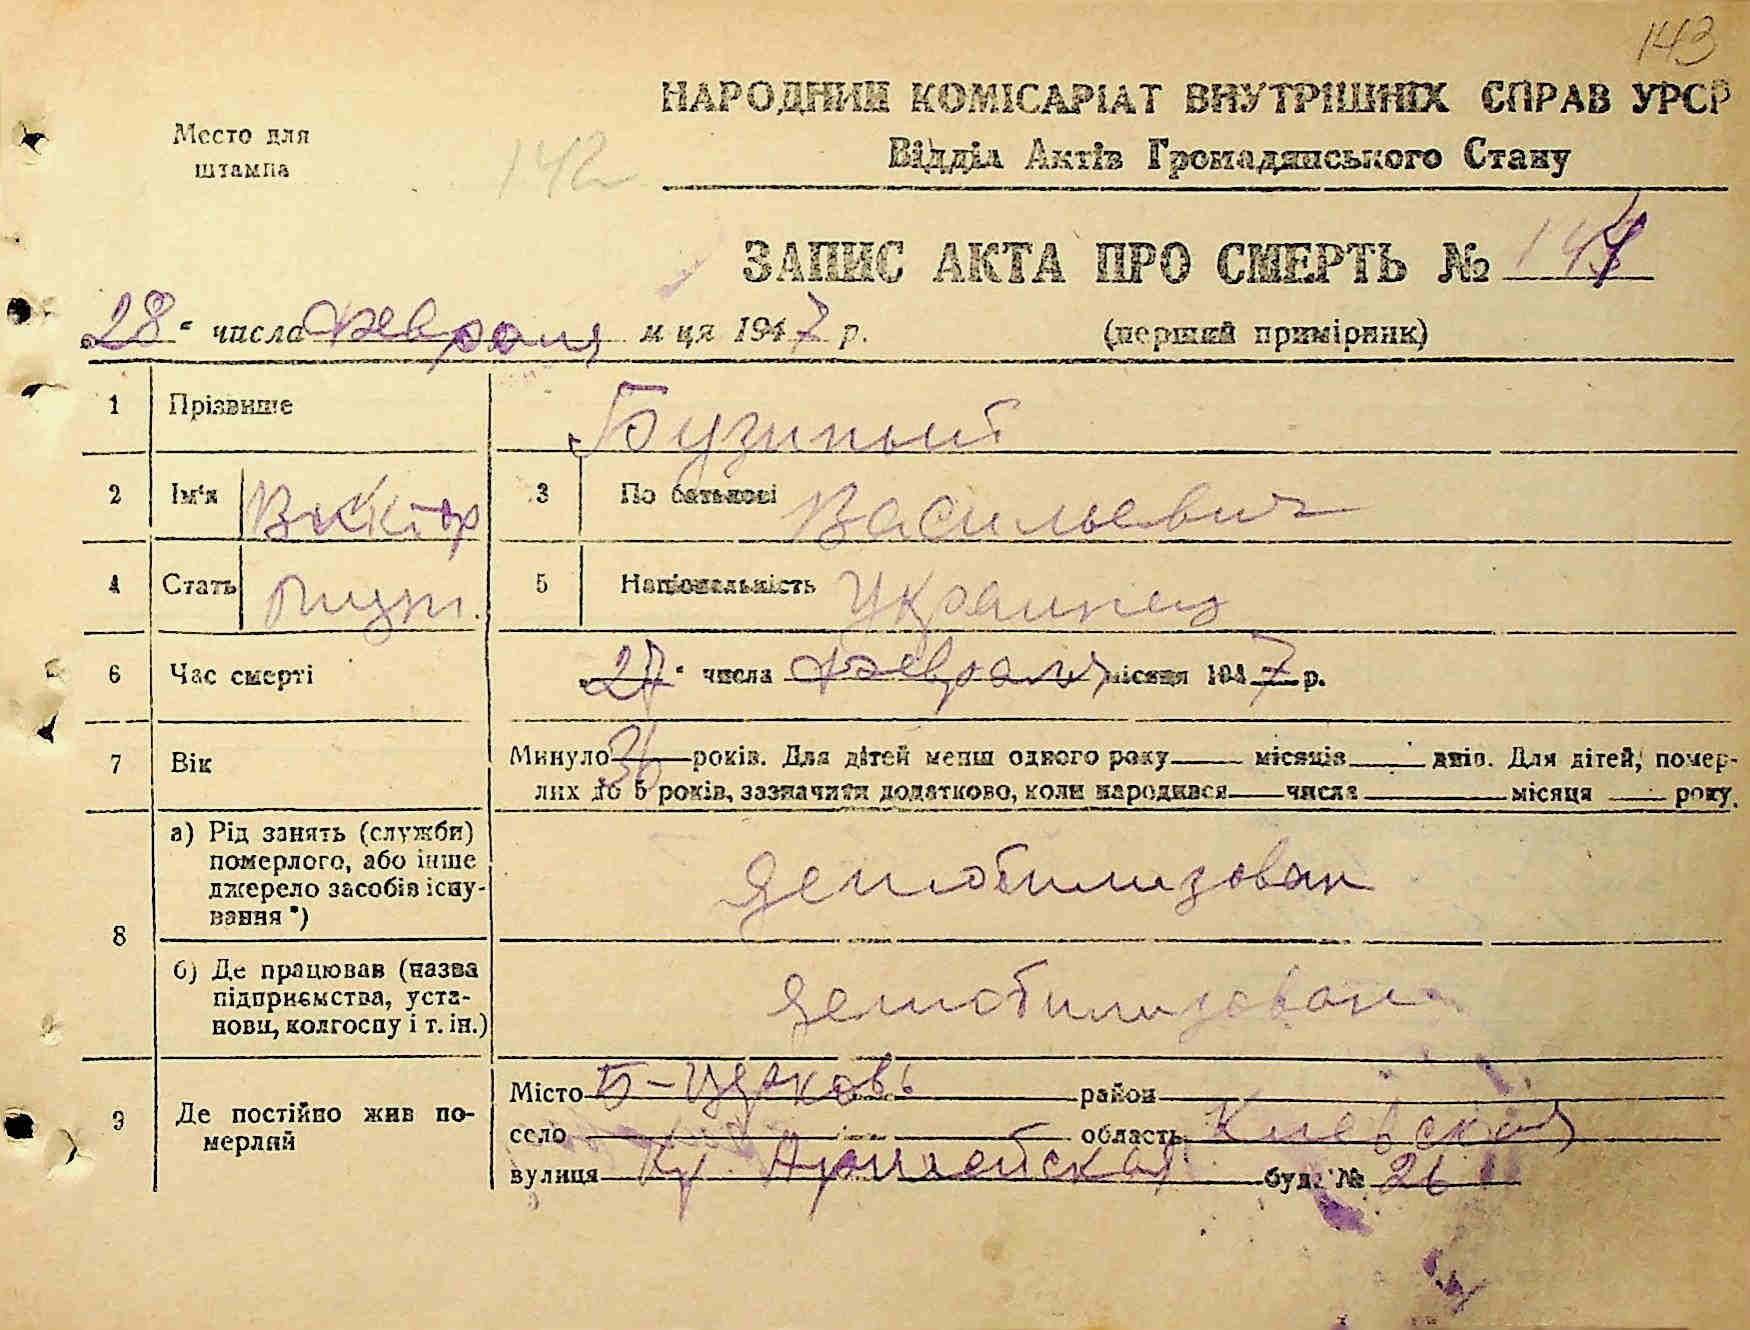 143
НАРОДНИЙ КОМІСАРІАТ ВНУТРІШНІХ СПРАВ УРСР
Место для
штампа
142
Відділ Актів Громадянського Стану
ЗАПИС АКТА ПРО СМЕРТЬ № 144
„28" числа февраля м ця 1947 р. (перший примірник)
1 Прізвище Бузиный
2 Ім'я Виктор 3 По батькові Васильевич
4 Стать муж. 5 Національність Украинец
6 Час смерті „27" числа февраля місяця 1947 р.
7 Вік Минуло 36 років. Для дітей менш одного року місяців днів. Для дітей, помер-
лих до 5 років, зазначити додатково, коли народився числа місяця року.
8 а) Рід занять (служби)
померлого, або інше
джерело засобів існу-
вання *) демобилизован
б) Де працював (назва
підприємства, уста-
нови, колгоспу і т. ін.) демобилизован
9 Де постійно жив по-
мерлий
Місто Б-Церковь район
село область Киевская
вулиця Кр. Армейская буд. № 26